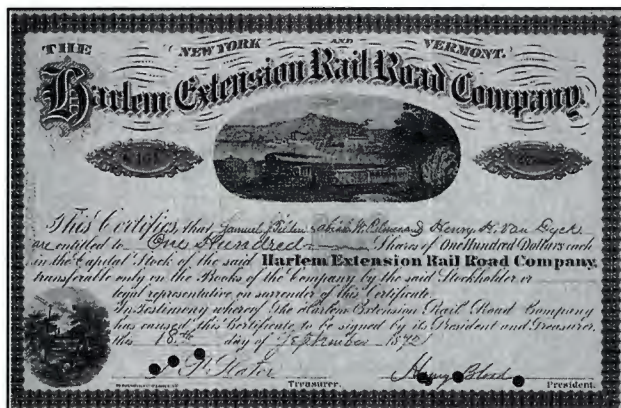 THE NEW YORK AND VERMONT.
Harlem Extension Rail Road Company.
This Certifies, that Samuel J. Tilden, W. Palmer & Henry H. Van Dyck
are entitled to One Hundred Shares of One Hundred Dollars each
in the Capital Stock of the said Harlem Extension Rail Road Company,
transferable only on the Books of the Company by the said Stockholder or
legal representative on surrender of this Certificate.
In Testimony whereof The Harlem Extension Rail Road Company
has caused this Certificate to be signed by its President and Treasurer,
this 18th day of September
Treasurer. President.